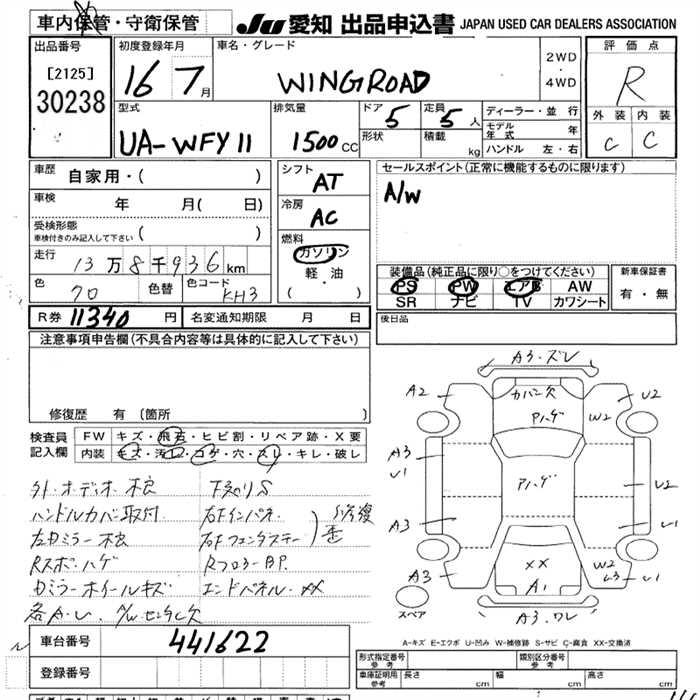 車内保管・守衛保管
JU 愛知 出品申込書 JAPAN USED CAR DEALERS ASSOCIATION
出品番号
[2125]
30238
初度登録年月
16 7月
車名・グレード
WINGROAD
2WD
・
4WD
評価点
R
外装 内装
C C
型式
UA-WFY11
排気量
1500cc
ドア
5
形状
定員
5人
積載
kg
ディーラー・並行
モデル年式 年
ハンドル 左・右
車歴 自家用・( )
車検 年 月( 日)
受検形態
車検付きのみ記入して下さい ( )
走行 13万8千936km
色 70 色替 色コード KH3
シフト
AT
冷房
AC
燃料
ガソリン
軽・油
( ・ )
セールスポイント(正常に機能するものに限ります)
A/W
装備品(純正品に限り○をつけてください)
PS PW エアB AW
SR ナビ TV カワシート
新車保証書
有・無
R券 11340円 名変通知期限 月 日
後日品
注意事項申告欄(不具合内容等は具体的に記入して下さい)
修復歴 有(箇所 )
検査員記入欄
FW キズ・飛石・ヒビ割・リペア跡・X要
内装 キズ・汚レ・コゲ・穴・スレ・キレ・破レ
外・オーディオ・欠
下廻りS
ハンドルカバー取付
右Fインパネ
修復歴
左Fミラー欠
右Fフェンダステー
Rスポハゲ
Rフロアー
ホイールキズ
エンドパネル・XX
各A・U
A3・ズレ
カバン欠
A2
U2
Pハゲ
W2
A3
U1
Pハゲ
U2
A3
U1
XX
W2
A3
A1
U3
U1
A3・ワレ
スペア
A-キズ E-エクボ U-凹み W-補修跡 S-サビ C-腐食 XX-交換済
車台番号 441622
登録番号
形式指定番号 参考
類別区分番号 参考
車庫証明用 参考
長さ cm 幅 cm 高さ cm